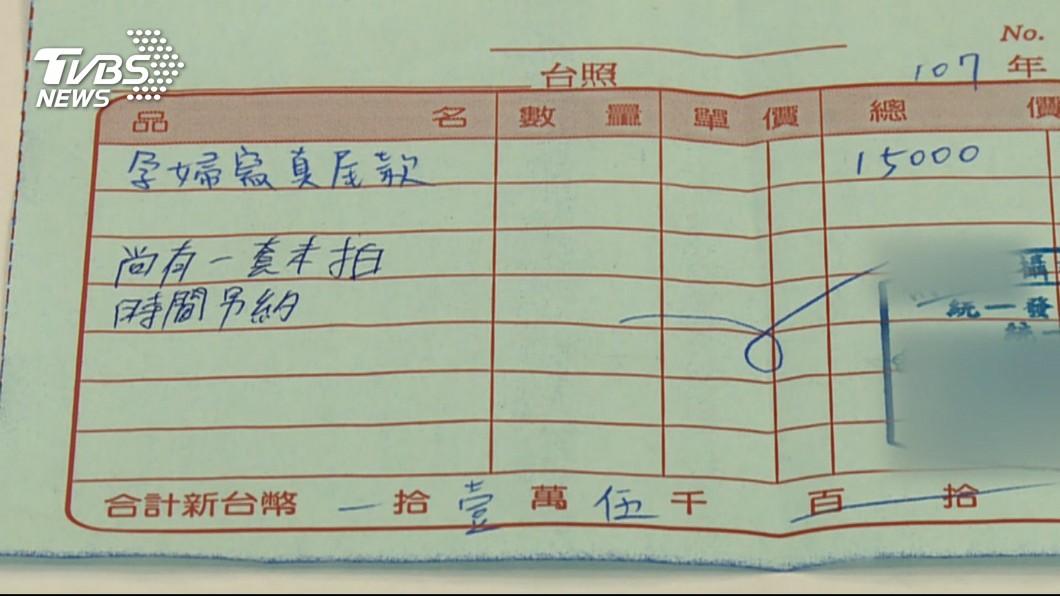 TVBS
NEWS
No.
台照
107 年
品 名 數 量 單 價 總 價
孕婦寫真尾款 15000
尚有一套未拍
時間另約
攝
統一發
統一
合計新台幣 一 拾 壹 萬 伍 千 百 拾